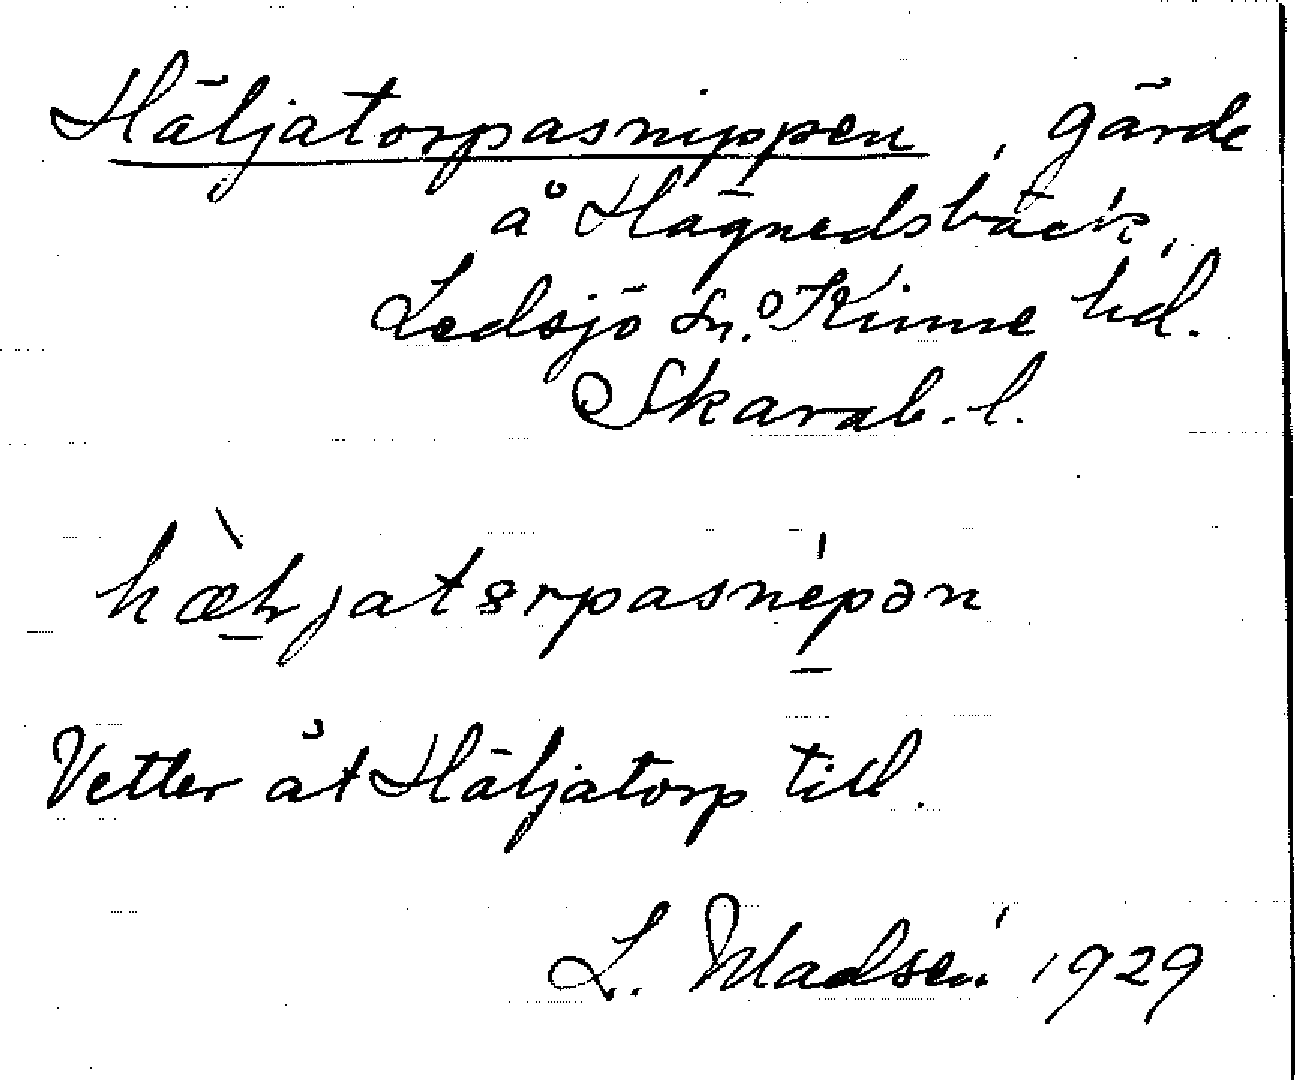 Häljatorpasnippen, gärde
å Hägnedsbäck,
Ledsjö sn. Kinne hd.
Skarab. l.
hæljatɔrpasnepən
Vetter åt Häljatorp till.
L. Madsén 1929